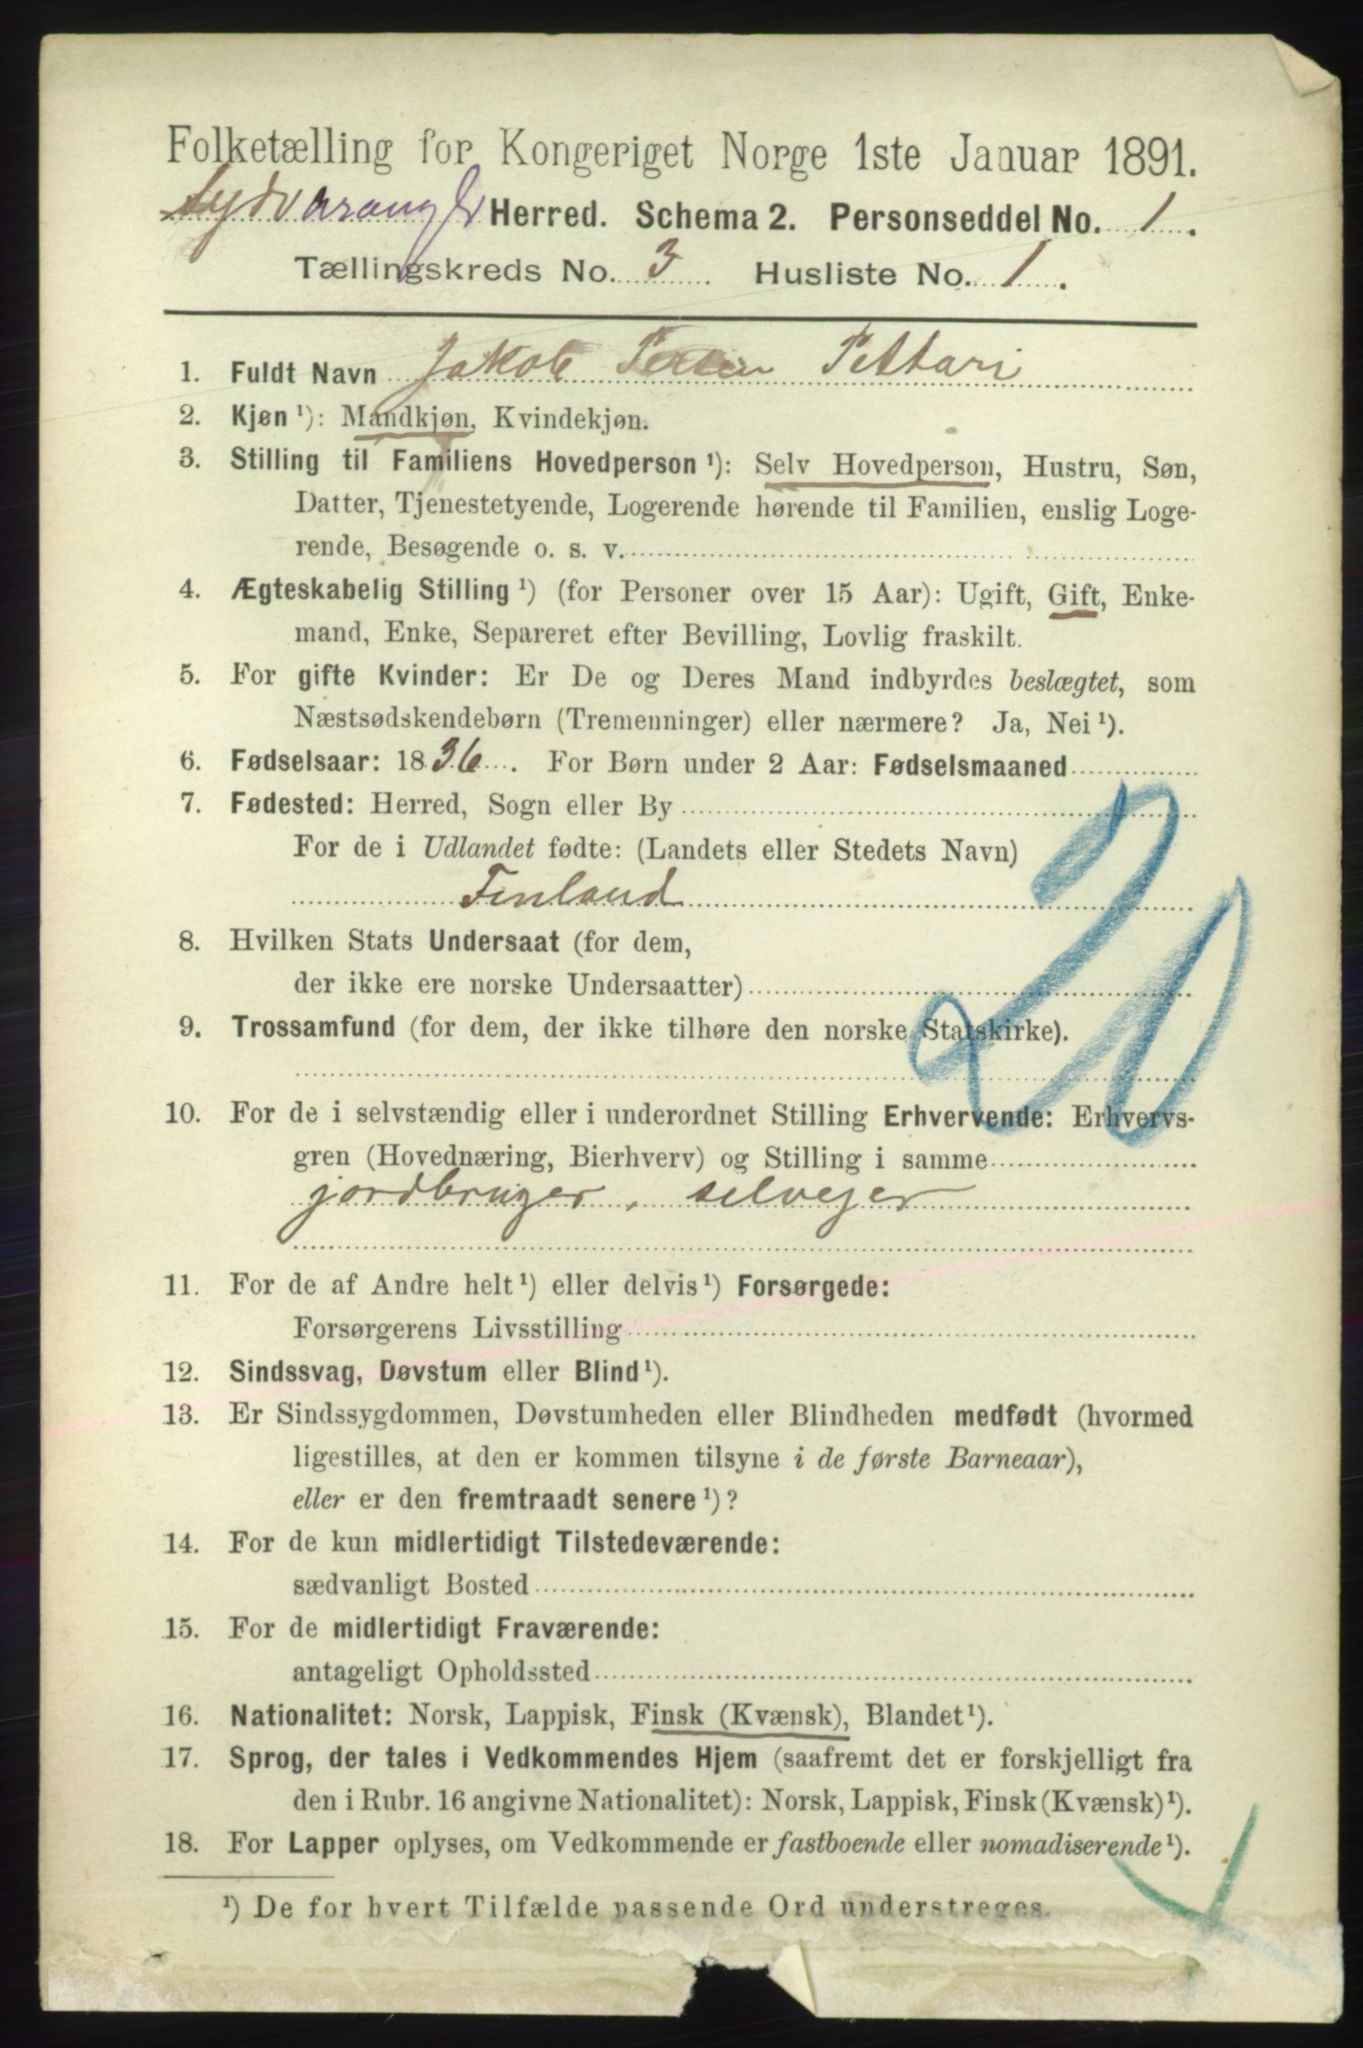 Folketælling for Kongeriget Norge 1ste Januar 1891.
Sydvaranger Herred. Schema 2. Personseddel No. 1.
Tællingskreds No. 3 Husliste No. 1.
1. Fuldt Navn Jakob Pettari
2. Kjøn ¹): Mandkjøn, Kvindekjøn.
3. Stilling til Familiens Hovedperson ¹): Selv Hovedperson, Hustru, Søn,
Datter, Tjenestetyende, Logerende hørende til Familien, enslig Loge-
rende, Besøgende o. s. v.
4. Ægteskabelig Stilling ¹) (for Personer over 15 Aar): Ugift, Gift, Enke-
mand, Enke, Separeret efter Bevilling, Lovlig fraskilt.
5. For gifte Kvinder: Er De og Deres Mand indbyrdes beslægtet, som
Næstsødskendebørn (Tremenninger) eller nærmere? Ja, Nei ¹).
6. Fødselsaar: 1836. For Børn under 2 Aar: Fødselsmaaned
7. Fødested: Herred, Sogn eller By
For de i Udlandet fødte: (Landets eller Stedets Navn)
Finland
8. Hvilken Stats Undersaat (for dem,
der ikke ere norske Undersaatter)
9. Trossamfund (for dem, der ikke tilhøre den norske Statskirke).
20
10. For de i selvstændig eller i underordnet Stilling Erhvervende: Erhvervs-
gren (Hovednæring, Bierhverv) og Stilling i samme
jordbruger, selvejer
11. For de af Andre helt ¹) eller delvis ¹) Forsørgede:
Forsørgerens Livsstilling
12. Sindssvag, Døvstum eller Blind ¹).
13. Er Sindssygdommen, Døvstumheden eller Blindheden medfødt (hvormed
ligestilles, at den er kommen tilsyne i de første Barneaar),
eller er den fremtraadt senere ¹)?
14. For de kun midlertidigt Tilstedeværende:
sædvanligt Bosted
15. For de midlertidigt Fraværende:
antageligt Opholdssted
16. Nationalitet: Norsk, Lappisk, Finsk (Kvænsk), Blandet ¹).
17. Sprog, der tales i Vedkommendes Hjem (saafremt det er forskjelligt fra
den i Rubr. 16 angivne Nationalitet): Norsk, Lappisk, Finsk (Kvænsk) ¹).
18. For Lapper oplyses, om Vedkommende er fastboende eller nomadiserende ¹).
¹) De for hvert Tilfælde passende Ord understreges.